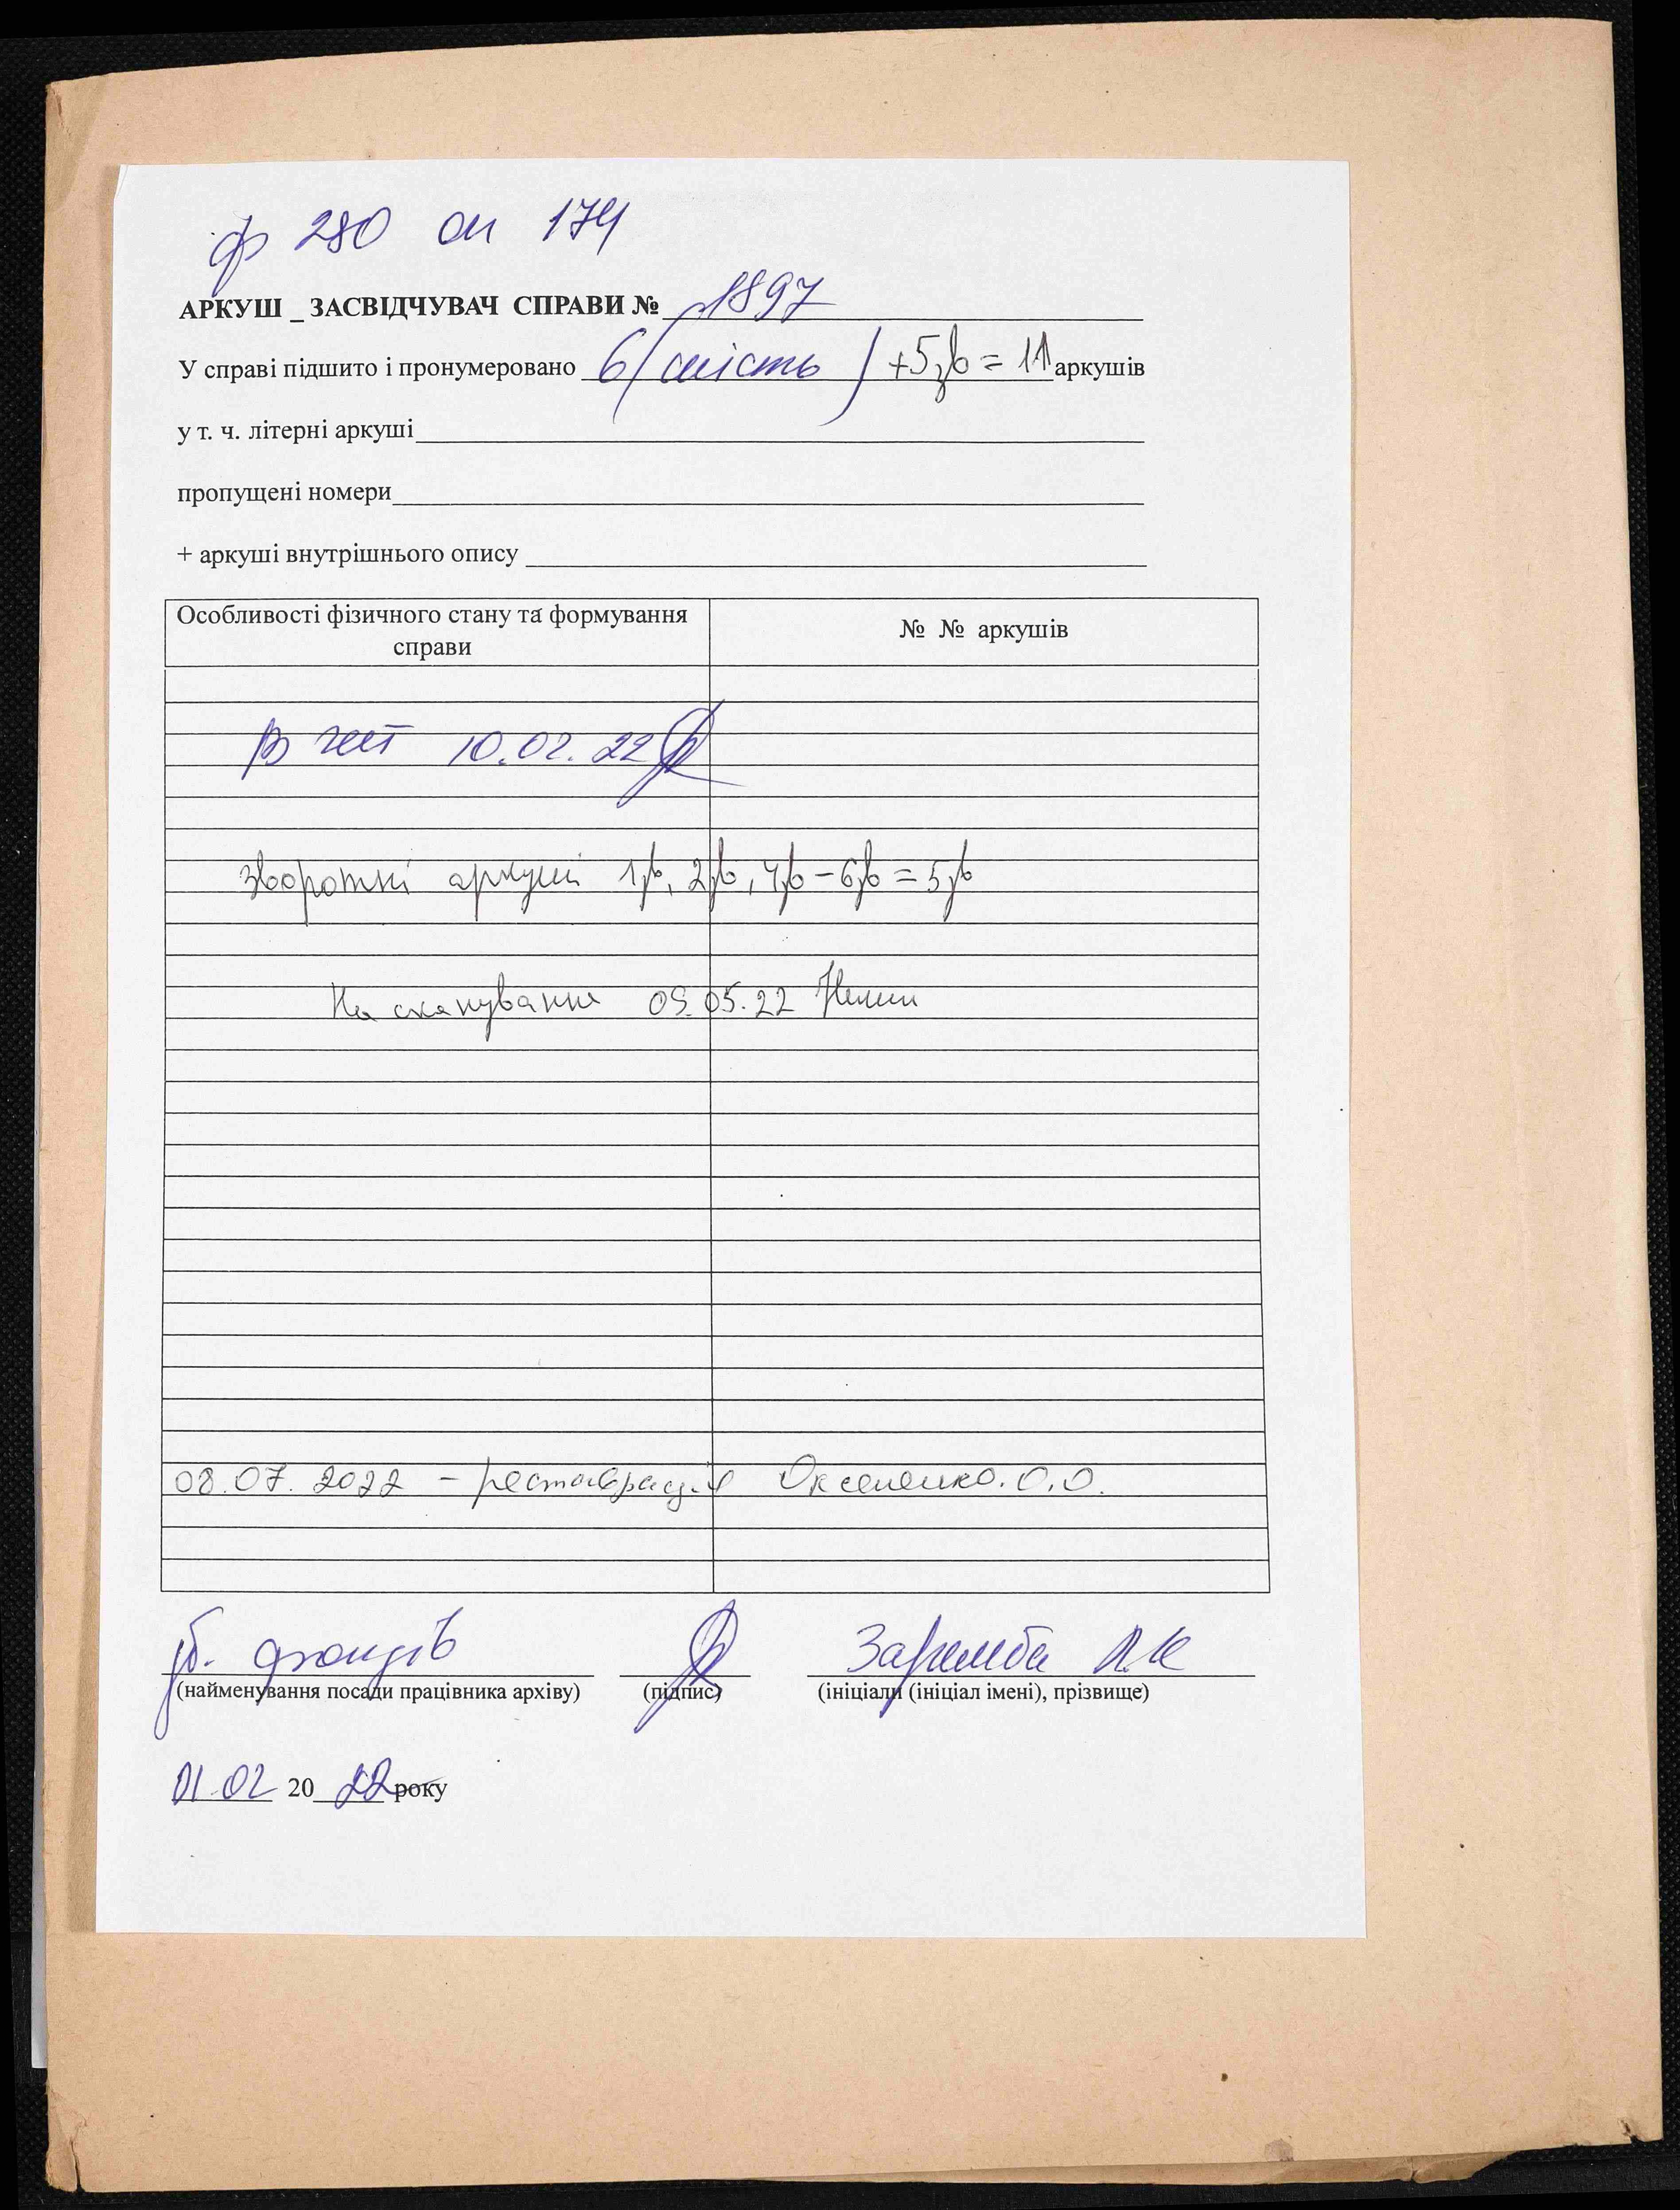 ф 280 оп 174
АРКУШ _ ЗАСВІДЧУВАЧ СПРАВИ № 1897
У справі підшито і пронумеровано 6 (шість) +5зв = 11 аркушів
у т. ч. літерні аркуші
пропущені номери
+ аркуші внутрішнього опису
Особливості фізичного стану та формування справи
№ № аркушів
В 10.02.22
Зворотні аркуші 1зв, 2зв, 4зв – 6зв = 5зв
На сканування 09.05.22
08.07.2022 – реставрація Оксененко.О.О.
фондів Заремба
(найменування посади працівника архіву) (підпис) (ініціали (ініціал імені), прізвище)
01.02 2022 року